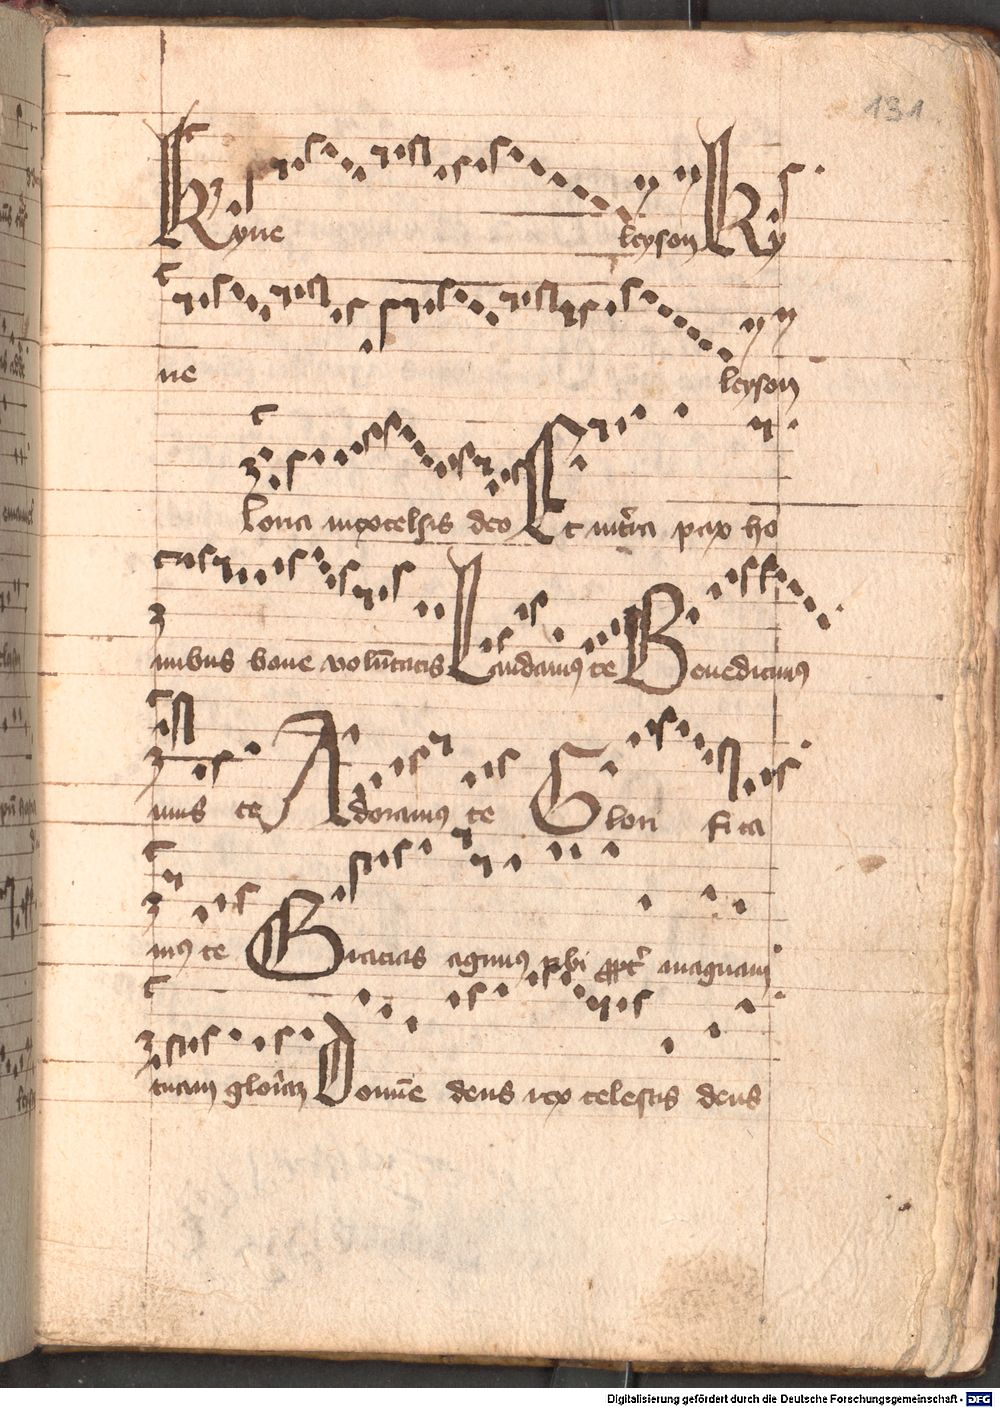 131
Kyrie leyson Ky
rie leyson
loria in excelsis deo Et in tr̄a pax ho
nibus bone volūtatis Laudamus te Benedicimus
mus te Adoramus te Glori fica
mus te Gracias agimus tibi ꝓpt̄ magnam
tuam gloriam Domīe deus rex celestis deus
Digitalisierung gefördert durch die Deutsche Forschungsgemeinschaft - DFG